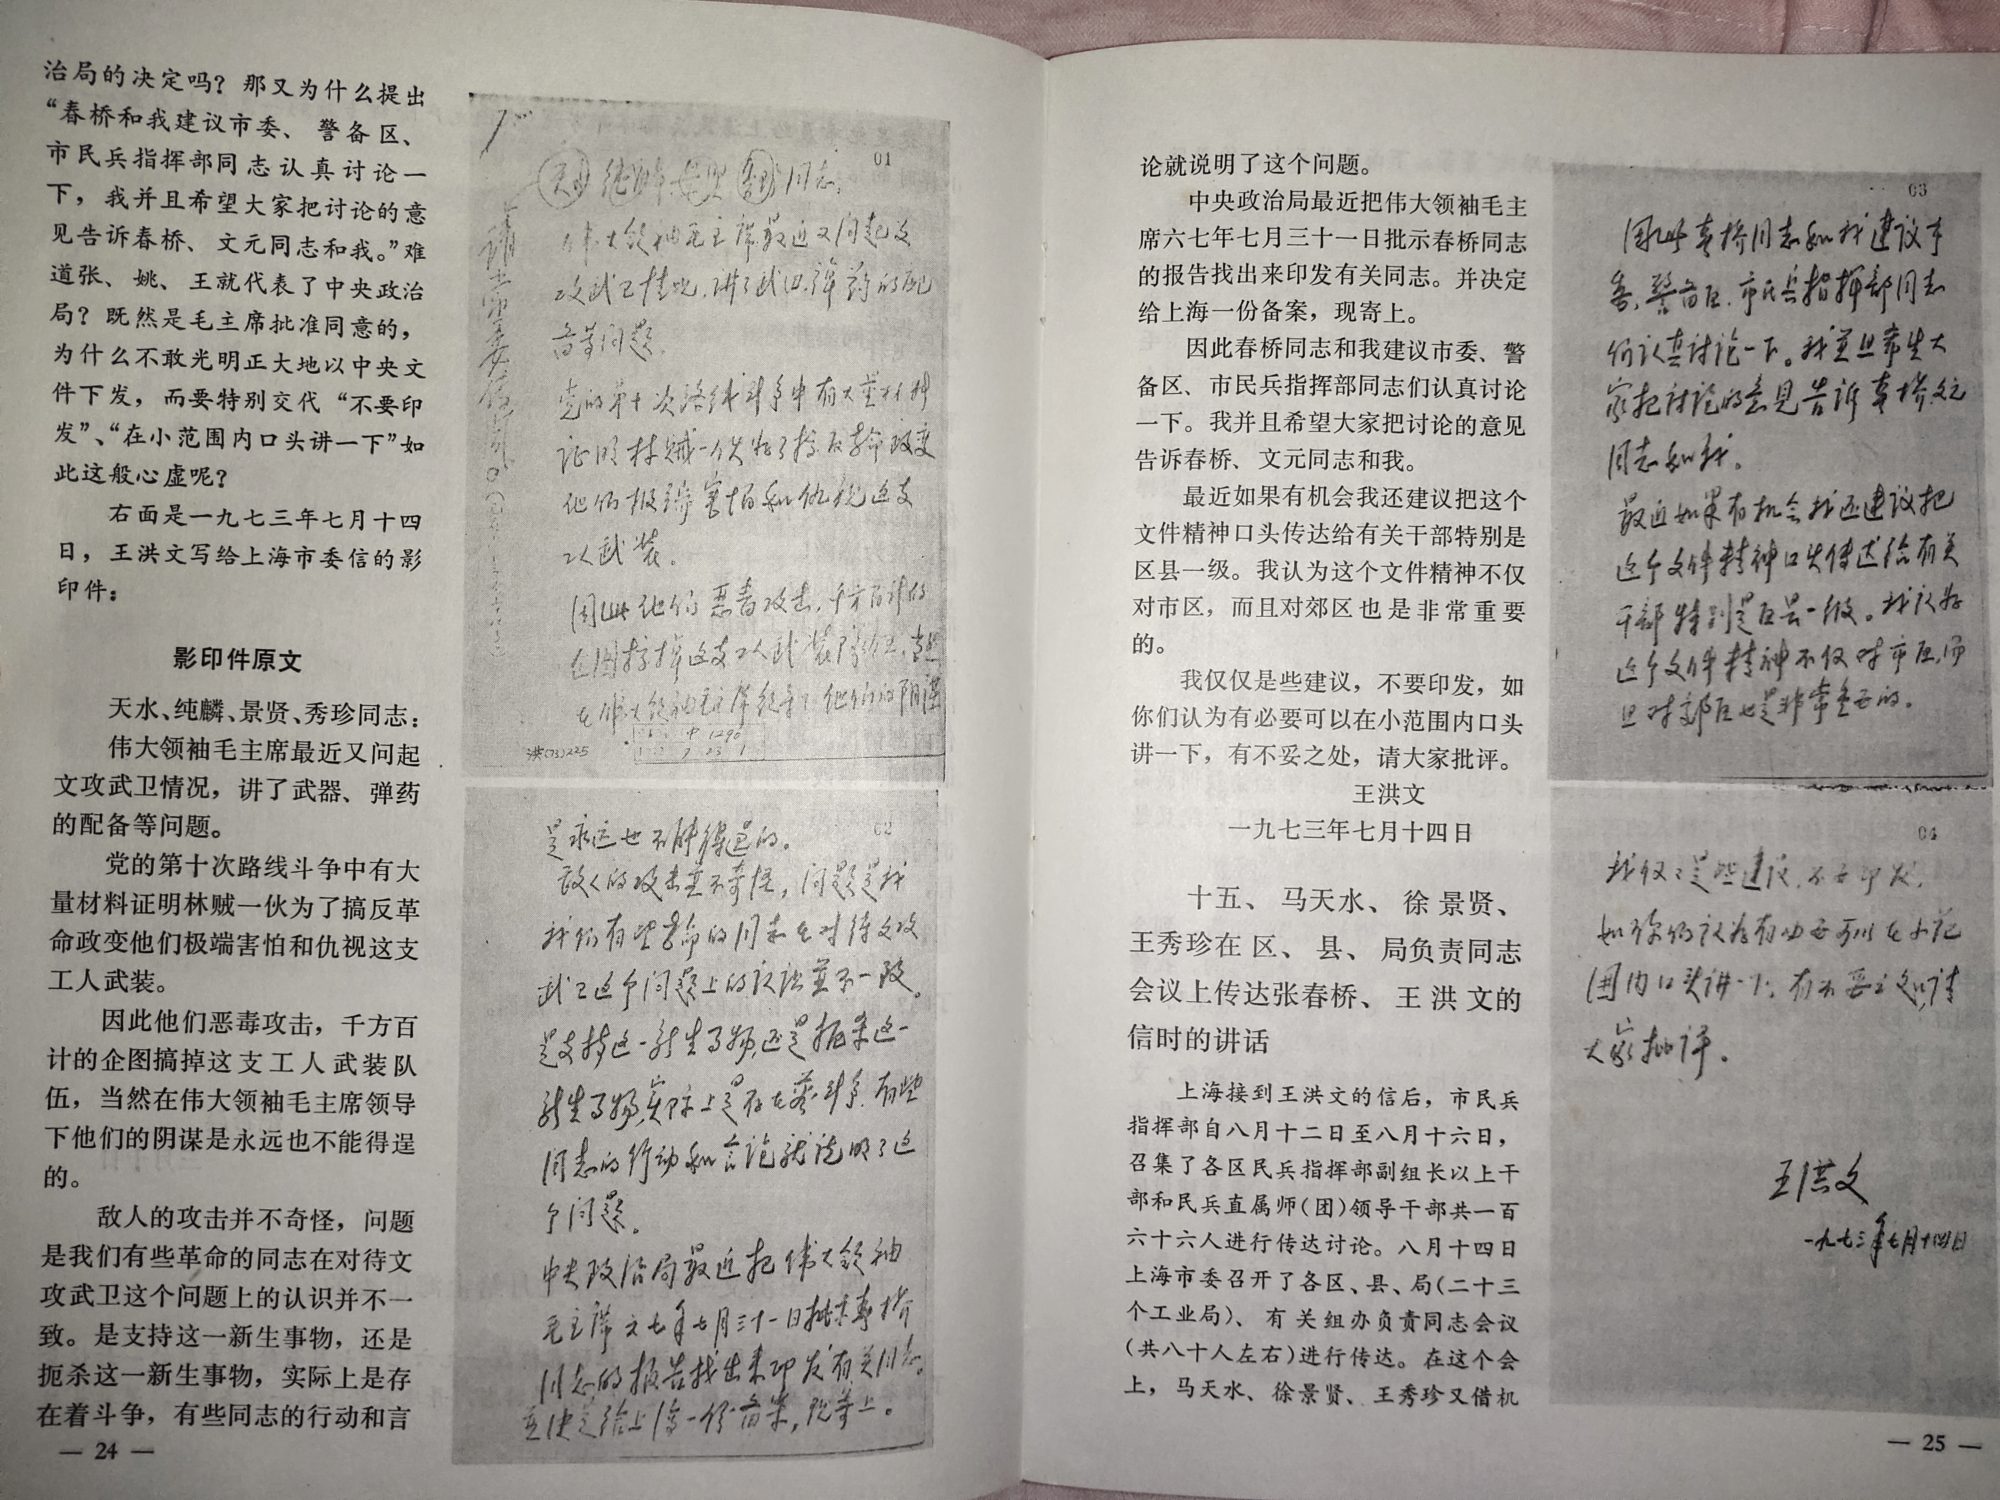 治局的决定吗？那又为什么提出
“春桥和我建议市委、警备区、
市民兵指挥部同志认真讨论一
下，我并且希望大家把讨论的意
见告诉春桥、文元同志和我。”难
道张、姚、王就代表了中央政治
局？既然是毛主席批准同意的，
为什么不敢光明正大地以中央文
件下发，而要特别交代“不要印
发”、“在小范围内口头讲一下”如
此这般心虚呢？
右面是一九七三年七月十四
日，王洪文写给上海市委信的影
印件：
影印件原文
天水、纯麟、景贤、秀珍同志：
伟大领袖毛主席最近又问起
文攻武卫情况，讲了武器、弹药
的配备等问题。
党的第十次路线斗争中有大
量材料证明林贼一伙为了搞反革
命政变他们极端害怕和仇视这支
工人武装。
因此他们恶毒攻击，千方百
计的企图搞掉这支工人武装队
伍，当然在伟大领袖毛主席领导
下他们的阴谋是永远也不能得逞
的。
敌人的攻击并不奇怪，问题
是我们有些革命的同志在对待文
攻武卫这个问题上的认识并不一
致。是支持这一新生事物，还是
扼杀这一新生事物，实际上是存
在着斗争，有些同志的行动和言
— 24 —
01
天水 纯麟 景贤 秀珍同志：
伟大领袖毛主席最近又问起文
攻武卫情况，讲了武器、弹药的配
备等问题。
党的第十次路线斗争中有大量材料
证明林贼一伙为了搞反革命政变
他们极端害怕和仇视这支
工人武装。
因此他们恶毒攻击，千方百计的
企图搞掉这支工人武装队伍，当然
在伟大领袖毛主席领导下他们的阴谋
洪(73)225
02
是永远也不能得逞的。
敌人的攻击并不奇怪，问题是我
我们有些革命的同志在对待文攻
武卫这个问题上的认识并不一致。
是支持这一新生事物，还是扼杀这一
新生事物，实际上是存在着斗争，有些
同志的行动和言论就说明了这
个问题。
中央政治局最近把伟大领袖
毛主席六七年七月三十一日批示春桥
同志的报告找出来印发有关同志。
并决定给上海一份备案，现寄上。
论就说明了这个问题。
中央政治局最近把伟大领袖毛主
席六七年七月三十一日批示春桥同志
的报告找出来印发有关同志。并决定
给上海一份备案，现寄上。
因此春桥同志和我建议市委、警
备区、市民兵指挥部同志们认真讨论
一下。我并且希望大家把讨论的意见
告诉春桥、文元同志和我。
最近如果有机会我还建议把这个
文件精神口头传达给有关干部特别是
区县一级。我认为这个文件精神不仅
对市区，而且对郊区也是非常重要
的。
我仅仅是些建议，不要印发，如
你们认为有必要可以在小范围内口头
讲一下，有不妥之处，请大家批评。
王洪文
一九七三年七月十四日
十五、马天水、徐景贤、
王秀珍在区、县、局负责同志
会议上传达张春桥、王洪文的
信时的讲话
上海接到王洪文的信后，市民兵
指挥部自八月十二日至八月十六日，
召集了各区民兵指挥部副组长以上干
部和民兵直属师（团）领导干部共一百
六十六人进行传达讨论。八月十四日
上海市委召开了各区、县、局（二十三
个工业局）、有关组办负责同志会议
（共八十人左右）进行传达。在这个会
上，马天水、徐景贤、王秀珍又借机
03
因此春桥同志和我建议市
委、警备区、市民兵指挥部同志
们认真讨论一下。我并且希望大
家把讨论的意见告诉春桥文元
同志和我。
最近如果有机会我还建议把
这个文件精神口头传达给有关
干部特别是区县一级。我认为
这个文件精神不仅对市区，而
且对郊区也是非常重要的。
04
我仅仅是些建议，不要印发，
如你们认为有必要可以在小范
围内口头讲一下，有不妥之处，请
大家批评。
王洪文
一九七三年七月十四日
— 25 —